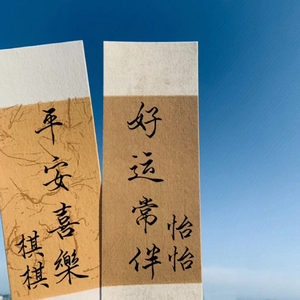 平安喜樂
棋棋
好運常伴
怡怡